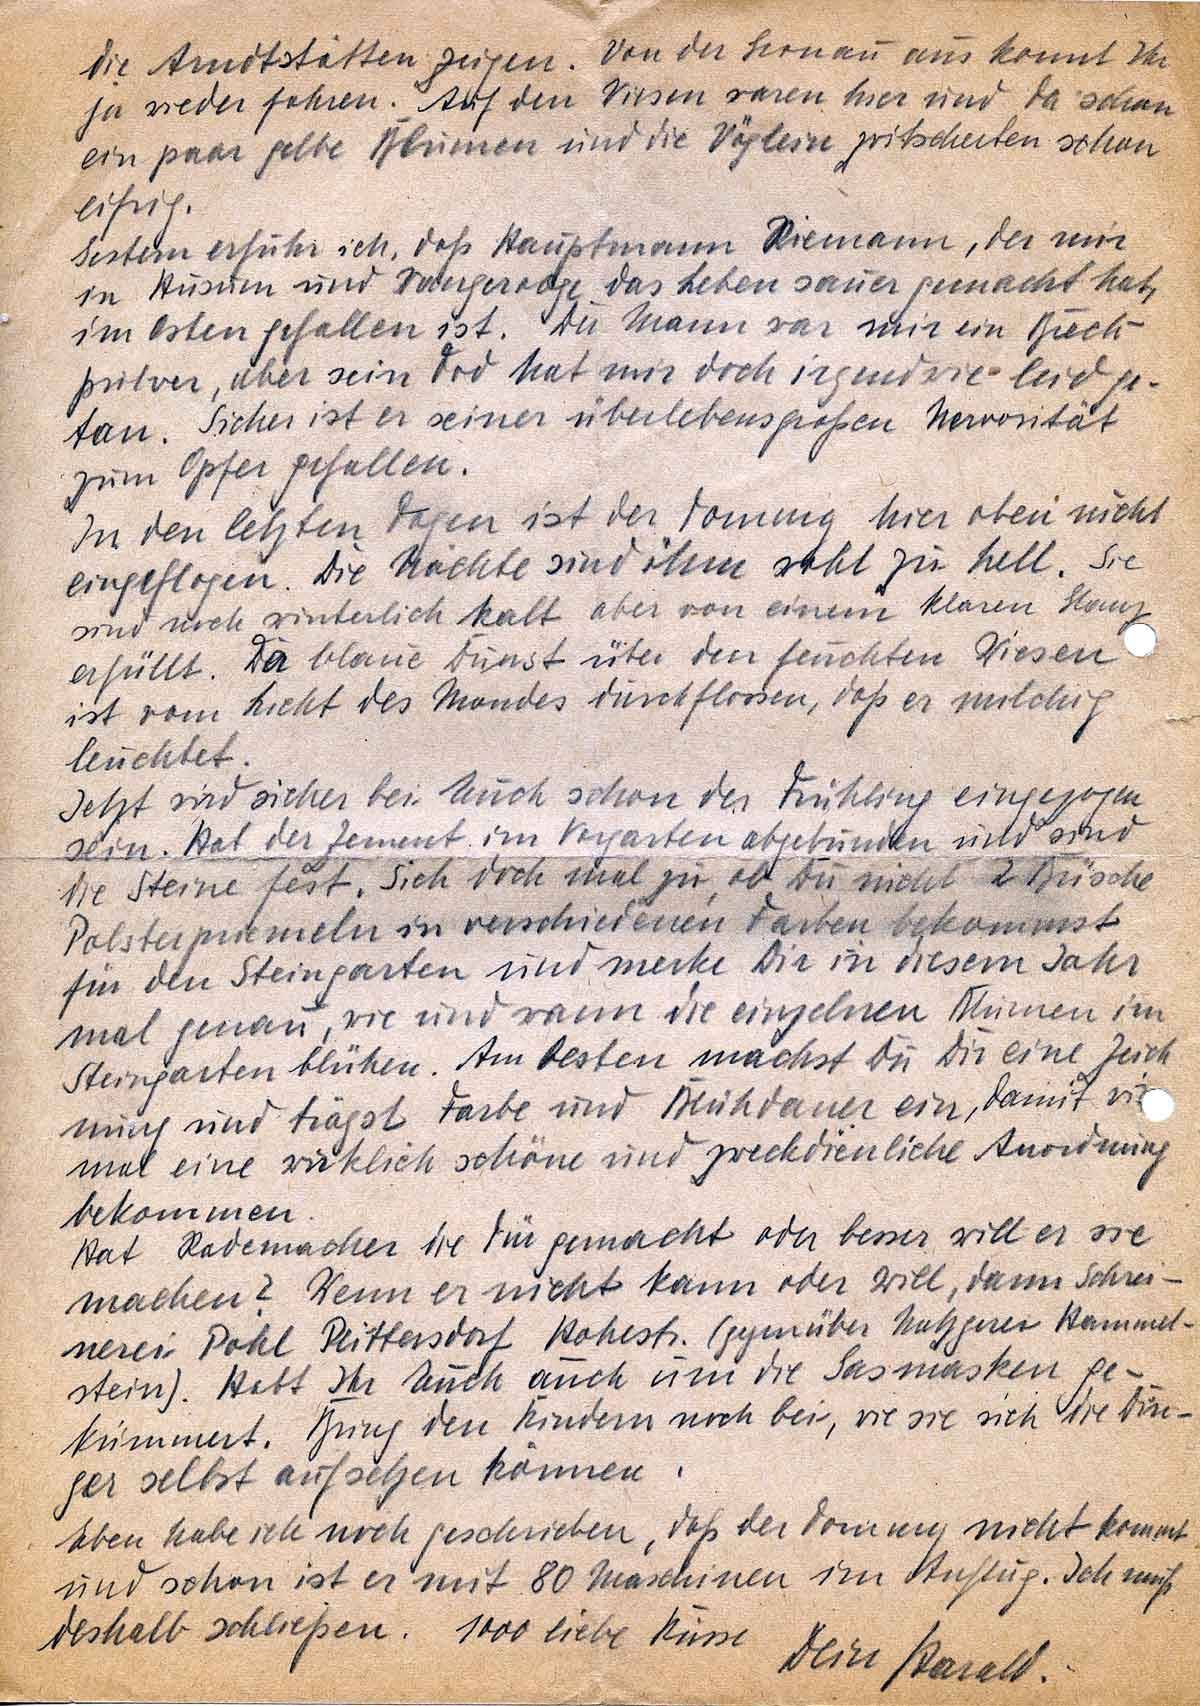 die Arndtstätten zeigen. Von der Gronau aus könnt Ihr
ja wieder fahren. Auf den Wiesen waren hier und da schon
ein paar gelbe Blumen und die Vöglein zwitscherten schon
eifrig.
Gestern erfuhr ich, daß Hauptmann Riemann, der mir
in Husum und Wangerooge das Leben sauer gemacht hat,
im Osten gefallen ist. Der Mann war mir ein Brech-
pulver, aber sein Tod hat mir doch irgendwie leid ge-
tan. Sicher ist er seiner überlebensgroßen Nervosität
zum Opfer gefallen.
In den letzten Tagen ist der Tommy hier oben nicht
eingeflogen. Die Nächte sind ihm wohl zu hell. Sie
sind noch winterlich kalt aber von einem klaren Glanz
erfüllt. Der blaue Dunst über den feuchten Wiesen
ist vom Licht des Mondes durchflossen, daß er milchig
leuchtet.
Jetzt wird sicher bei Euch schon der Frühling eingezogen
sein. Hat der Zement im Vorgarten abgebunden und sind
die Steine fest. Sieh doch mal zu, ob Du nicht 2 Büsche
Polsterpriemeln in verschiedenen Farben bekommst
für den Steingarten und merke Dir in diesem Jahr
mal genau, wie und wann die einzelnen Blumen im
Steingarten blühen. Am besten machst Du Dir eine Zeich
nung und trägst Farbe und Blühdauer ein, damit wir
mal eine wirklich schöne und zweckdienliche Anordnung
bekommen.
Hat Rademacher die Tür gemacht oder besser will er sie
machen? Wenn er nicht kann oder will, dann Schrei-
nerei Pohl Plittersdorf Hohestr. (gegenüber Metzgerei Hammel-
stein). Habt Ihr Euch auch um die Gasmasken ge-
kümmert. Bring den Kindern noch bei, wie sie sich die Din-
ger selbst aufsetzen können.
Eben habe ich noch geschrieben, daß der Tommy nicht kommt
und schon ist er mit 80 Maschinen im Anflug. Ich muß
deshalb schließen. 1000 liebe Küsse
Dein Harald.